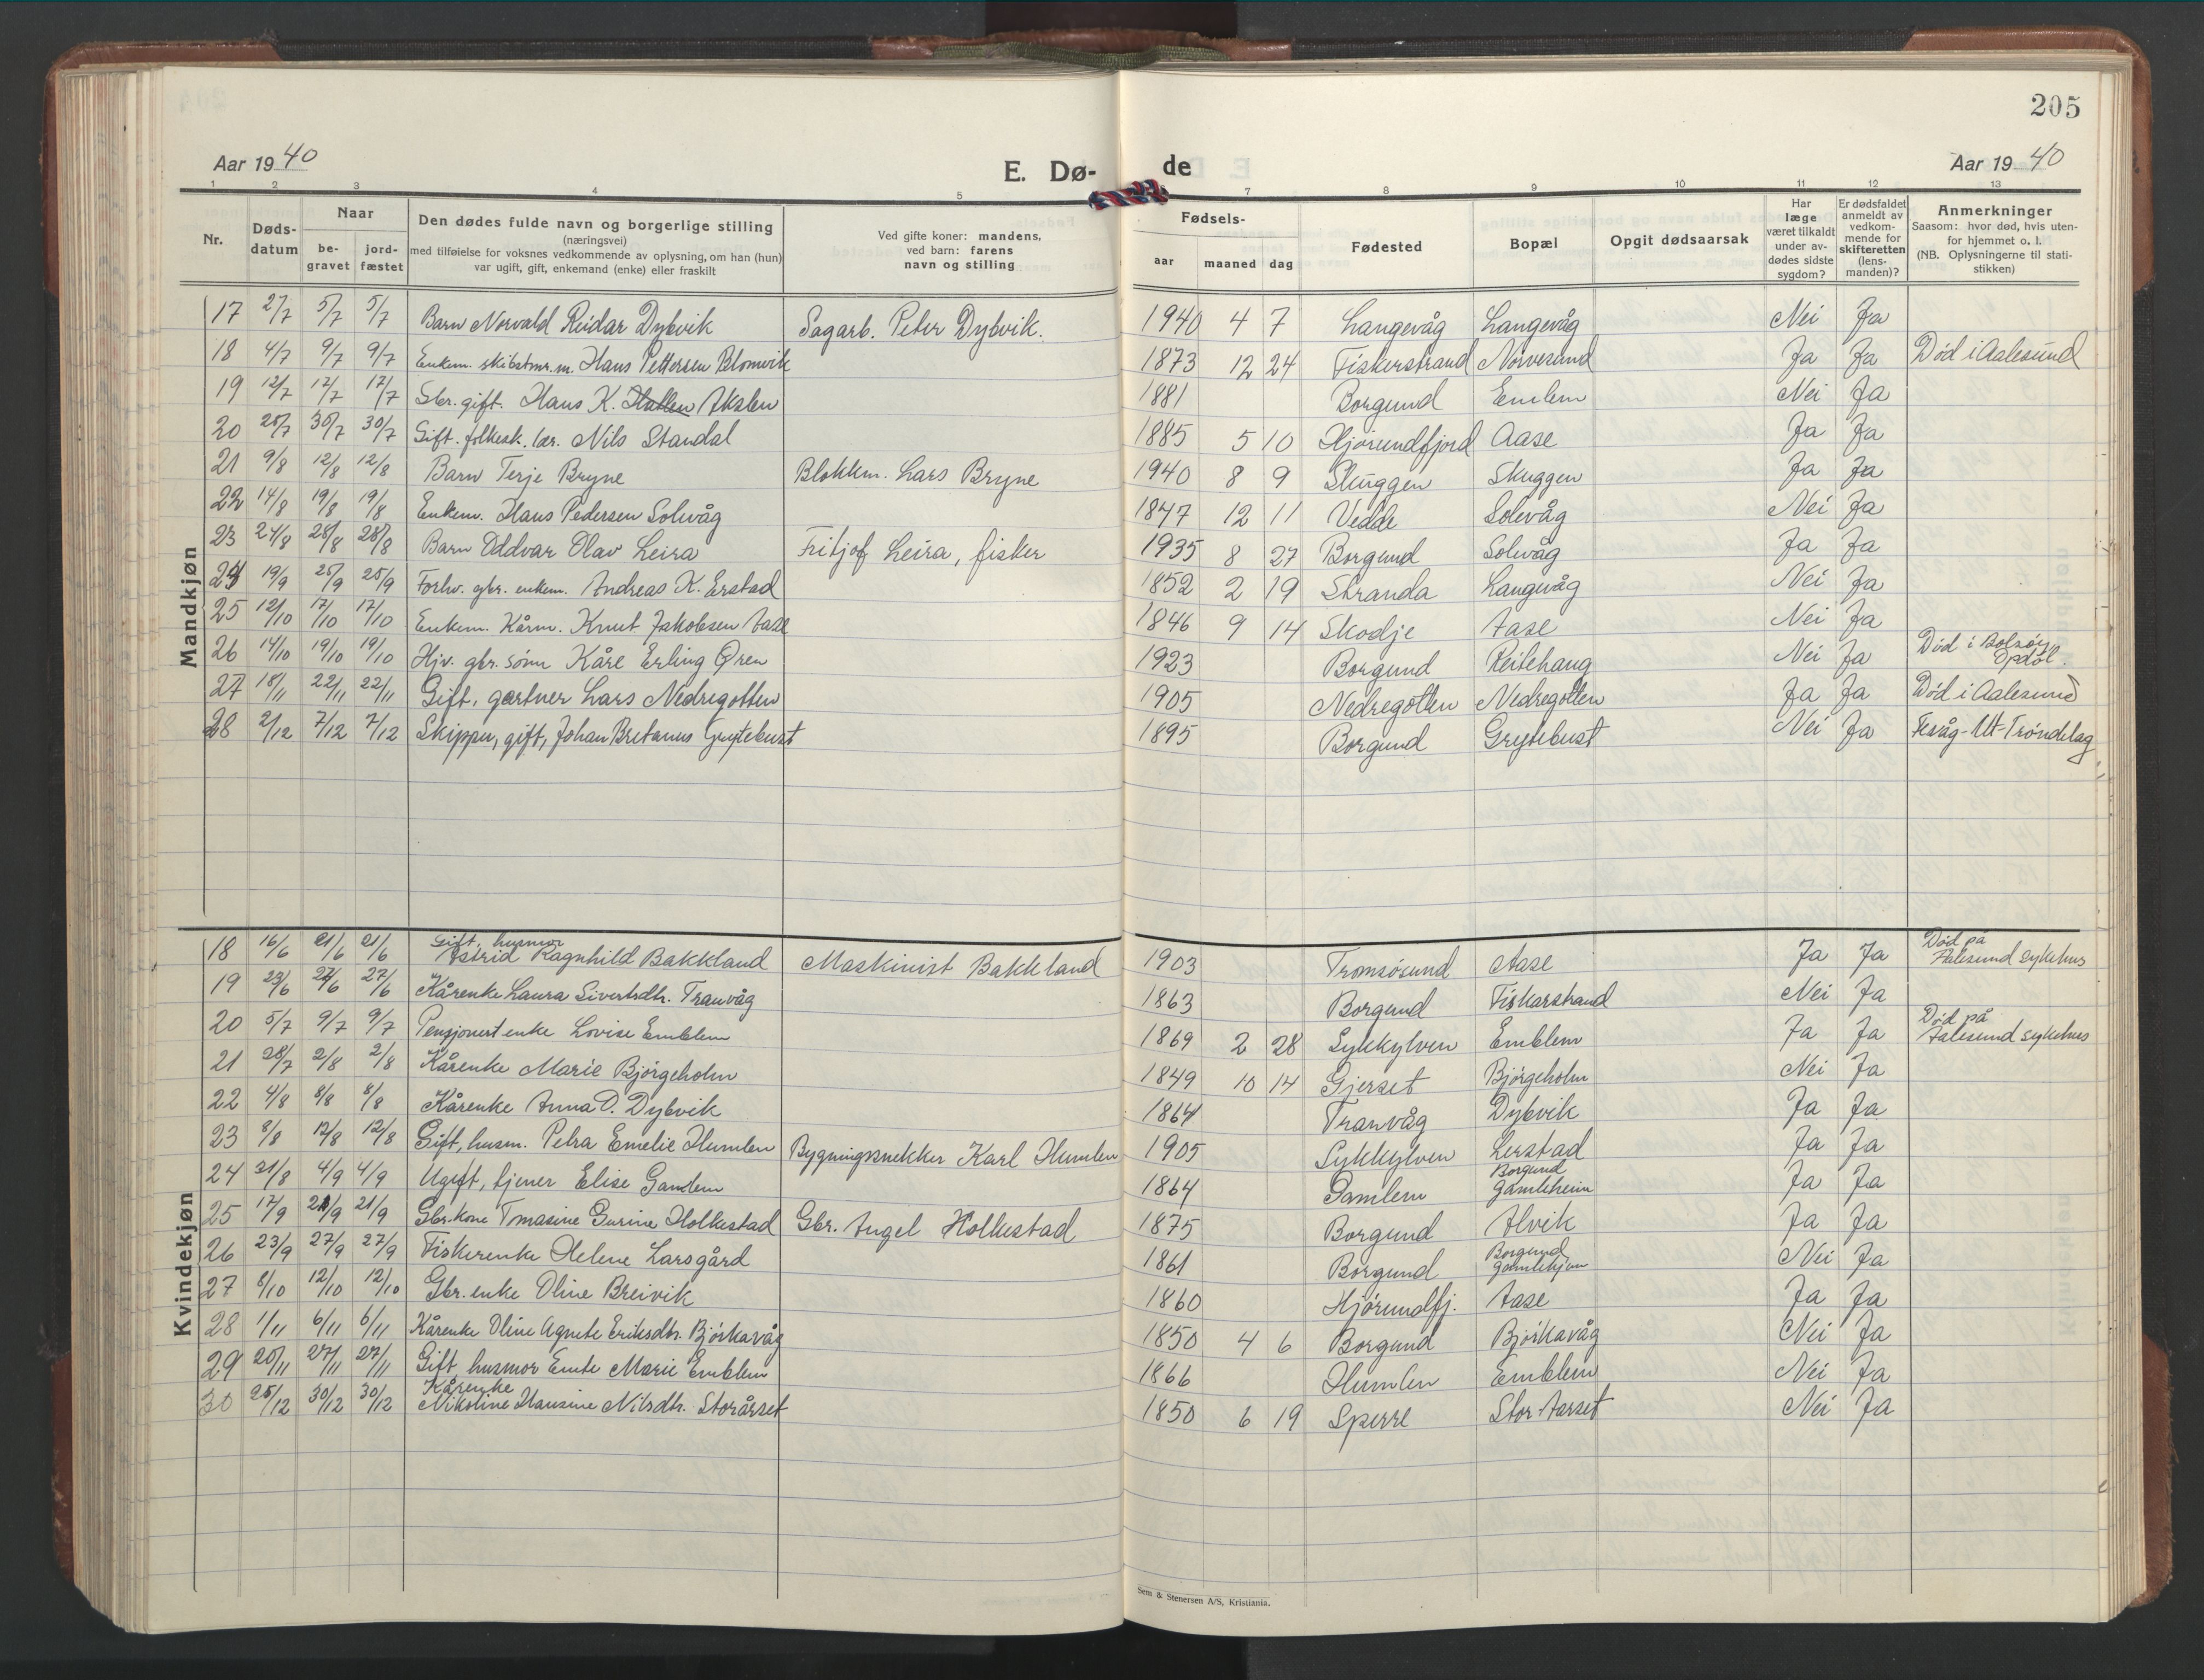 205
Aar 1940
E. Dø-
de
Aar 1940
1 2 3 4 5 7 8 9 10 11 12 13
Nr. Døds-datum Naar be-gravet jord-fæstet Den dødes fulde navn og borgerlige stilling (næringsvei) med tilføielse for voksnes vedkommende av oplysning, om han (hun) var ugift, gift, enkemand (enke) eller fraskilt Ved gifte koner: mandens, ved barn: farens navn og stilling Fødsels- aar maaned dag Fødested Bopæl Opgit dødsaarsak Har læge været tilkaldt under av-dødes sidste sygdom? Er dødsfaldet anmeldt av vedkom-mende for skifteretten (lens-manden)? Anmerkninger Saasom: hvor død, hvis uten-for hjemmet o. l. (NB. Oplysningerne til stati-stikken)
Mandkjøn
17 2/7 5/7 5/7 Barn Norvald Reidar Dybvik Sagarb. Peter Dybvik. 1940 4 7 Langevåg Langevåg Nei Ja
18 4/7 9/7 9/7 Enkem. skibstmr.m. Hans Pettersen Blomvik 1873 12 24 Fiskerstrand Nørvesund Ja Ja Død i Aalesund
19 12/7 17/7 17/7 Gbr. gift. Hans K. Hatlen Akslen 1881 Borgund Emlem Nei Ja
20 25/7 30/7 30/7 Gift. folkesk. lær. Nils Standal 1885 5 10 Hjørundfjord Aase Ja Ja
21 9/8 12/8 12/8 Barn Terje Bryne Blokkm. Lars Bryne 1940 8 9 Skuggen Skuggen Ja Ja
22 14/8 19/8 19/8 Enkem. Hans Pedersen Solevåg 1847 12 11 Vedde Solevåg Nei Ja
23 24/8 28/8 28/8 Barn Oddvar Olav Leira Fritjof Leira, fisker 1935 8 27 Borgund Solevåg Ja Ja
24 19/9 25/9 25/9 Forhv. gbr. enkem. Andreas K. Erstad 1852 2 19 Stranda Langevåg Nei Ja
25 12/10 17/10 17/10 Enkem. Kårm. Knut Jakobsen Aase 1846 9 14 Skodje Aase Nei Ja
26 14/10 19/10 19/10 Hjv. gbr. sønn Kåre Erling Øren 1923 Borgund Reitehaug Nei Ja Død i Bolsøy Opdøl.
27 18/11 22/11 22/11 Gift, gartner Lars Nedregotten 1905 Nedregotten Nedregotten Ja Ja Død i Aalesund
28 2/12 7/12 7/12 Skipper, gift, Johan Bretanus Grytebust 1895 Borgund Grytebust Nei Ja Fesvåg-Utt-Trøndelag
Kvindekjøn
18 16/6 21/6 21/6 Gift, husmor Astrid Ragnhild Bakkland Maskinist Bakkland 1903 Tromsøsund Aase Ja Ja Død på Aalesund sykehus
19 23/6 27/6 27/6 Kårenke Laura Sivertsdtr. Tranvåg 1863 Borgund Fiskarstrand Nei Ja
20 5/7 9/7 9/7 Pensjonert enke Lovise Emblem 1869 2 28 Sykkylven Emblem Ja Ja Død på Aalesund sykehus
21 28/7 2/8 2/8 Kårenke Marie Bjørgeholm 1849 10 14 Gjerset Bjørgeholm Nei Ja
22 4/8 8/8 8/8 Kårenke Anna O. Dybvik 1864 Tranvåg Dybvik Ja Ja
23 8/8 12/8 12/8 Gift, husm. Petra Emelie Humlen Bygningssnekker Karl Humlen 1905 Sykkylven Lerstad Ja Ja
24 31/8 4/9 4/9 Ugift, tjener Elise Gamlem 1864 Gamlem Borgund Gamleheim Ja Ja
25 17/9 21/9 21/9 Gbr.kone Tomasine Gurine Holkestad Gbr. Angel Holkestad 1875 Borgund Alvik Ja Ja
26 23/9 27/9 27/9 Fiskerenke Helene Larsgård 1861 Borgund Borgund Gamlehjem Nei Ja
27 8/10 12/10 12/10 Gbr. enke Oline Breivik 1860 Hjørundfj. Aase Ja Ja
28 1/11 6/11 6/11 Kårenke Oline Agnete Eriksdtr. Bjørkavåg 1850 4 6 Borgund Bjørkavåg Nei Ja
29 20/11 27/11 27/11 Gift husmor Emte Marie Emblem 1866 Humlen Emblem Nei Ja
30 25/12 30/12 30/12 Kårenke Nikoline Hansine Nilsdtr. Storårset 1850 6 19 Sperre Stor-Aarset Nei Ja
Sem & Stenersen A/S, Kristiania.